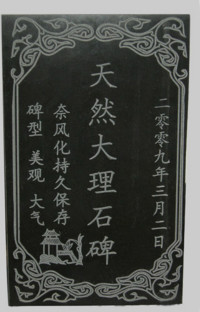 二零零九年三月二日
天然大理石碑
奈风化持久保存
碑型 美观 大气